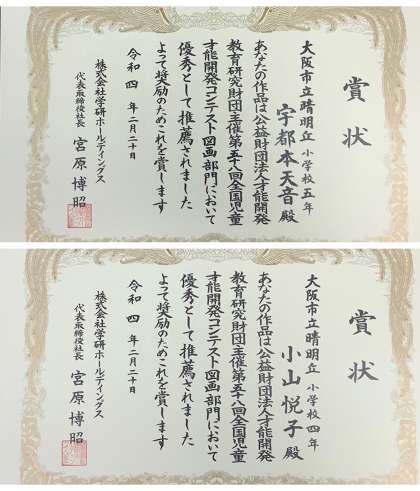 賞状
大阪市立晴明丘小学校五年
宇都本天音殿
あなたの作品は公益財団法人才能開発
教育研究財団主催第五十八回全国児童
才能開発コンテスト図画部門において
優秀として推薦されました
よって奨励のためこれを賞します
令和四年二月二十日
株式会社学研ホールディングス
代表取締役社長 宮原博昭
賞状
大阪市立晴明丘小学校四年
小山悦子殿
あなたの作品は公益財団法人才能開発
教育研究財団主催第五十八回全国児童
才能開発コンテスト図画部門において
優秀として推薦されました
よって奨励のためこれを賞します
令和四年二月二十日
株式会社学研ホールディングス
代表取締役社長 宮原博昭